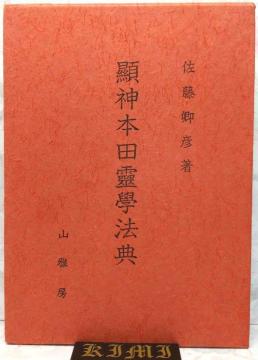 佐藤卿彦著
顯神本田靈學法典
山雅房
KIMI